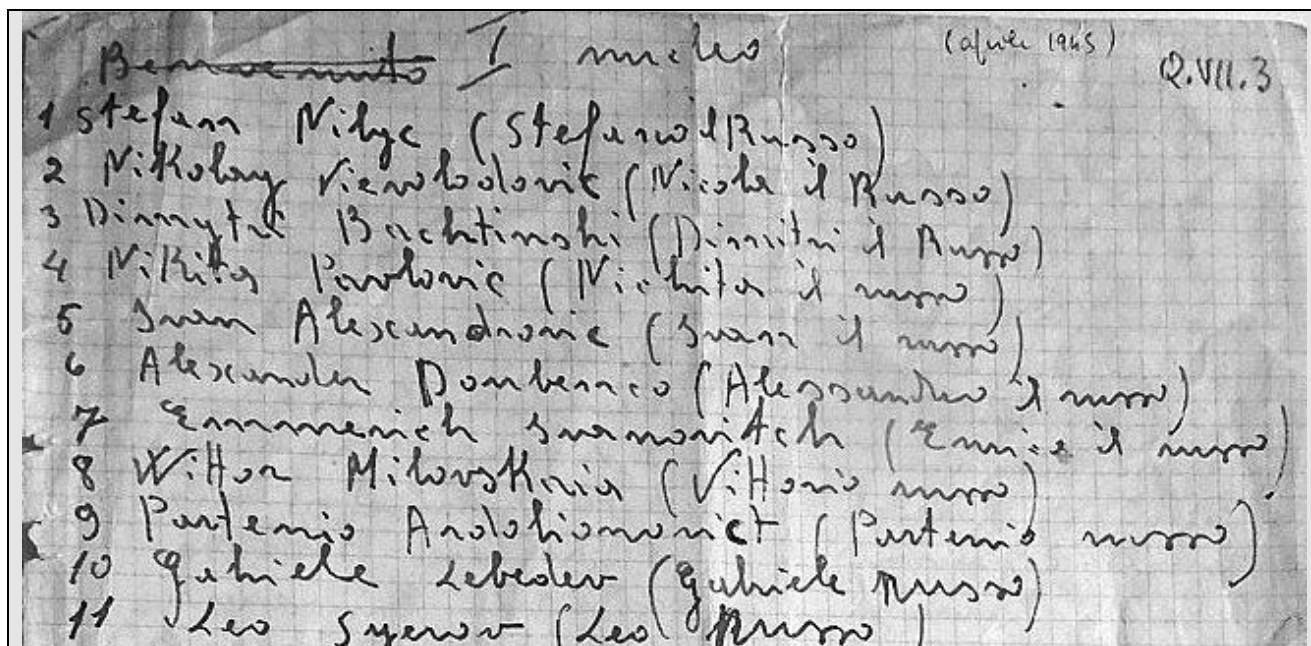 Benvenuto I nucleo (aprile 1945) Q.VII.3
1 Stefan Nilyc (Stefano il Russo)
2 Nikolay Vievolodovic (Nicola il Russo)
3 Dimytri Bachtinski (Dimitri il Russo)
4 Nikita Pavlovic (Nichita il russo)
5 Ivan Alexandrovic (Ivan il russo)
6 Alexander Dombenco (Alessandro il russo)
7 Emmerich Ivanovitch (Enrico il russo)
8 Wittor Milovskria (Vittorio russo)
9 Partenio Ardohionovict (Partenio russo)
10 Gabriele Lebedev (Gabriele russo)
11 Leo Syerov (Leo Russo)